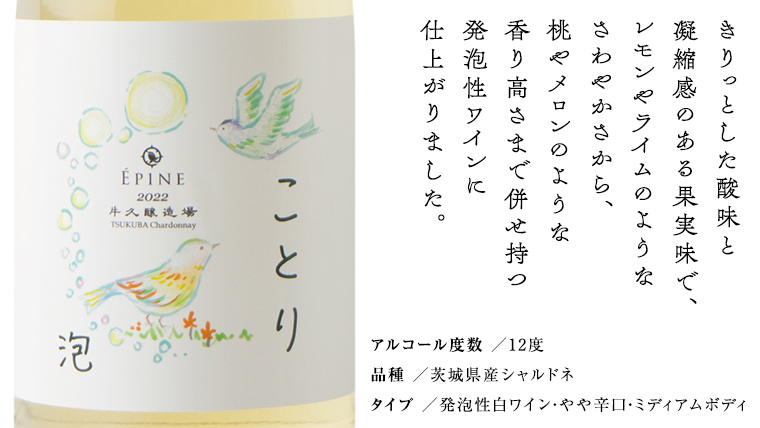 ÉPINE
2022
牛久醸造場
TSUKUBA Chardonnay
ことり
泡
きりっとした酸味と
凝縮感のある果実味で、
レモンやライムのような
さわやかさから、
桃やメロンのような
香り高さまで併せ持つ
発泡性ワインに
仕上がりました。
アルコール度数 ／12度
品種 ／茨城県産シャルドネ
タイプ ／発泡性白ワイン・やや辛口・ミディアムボディ